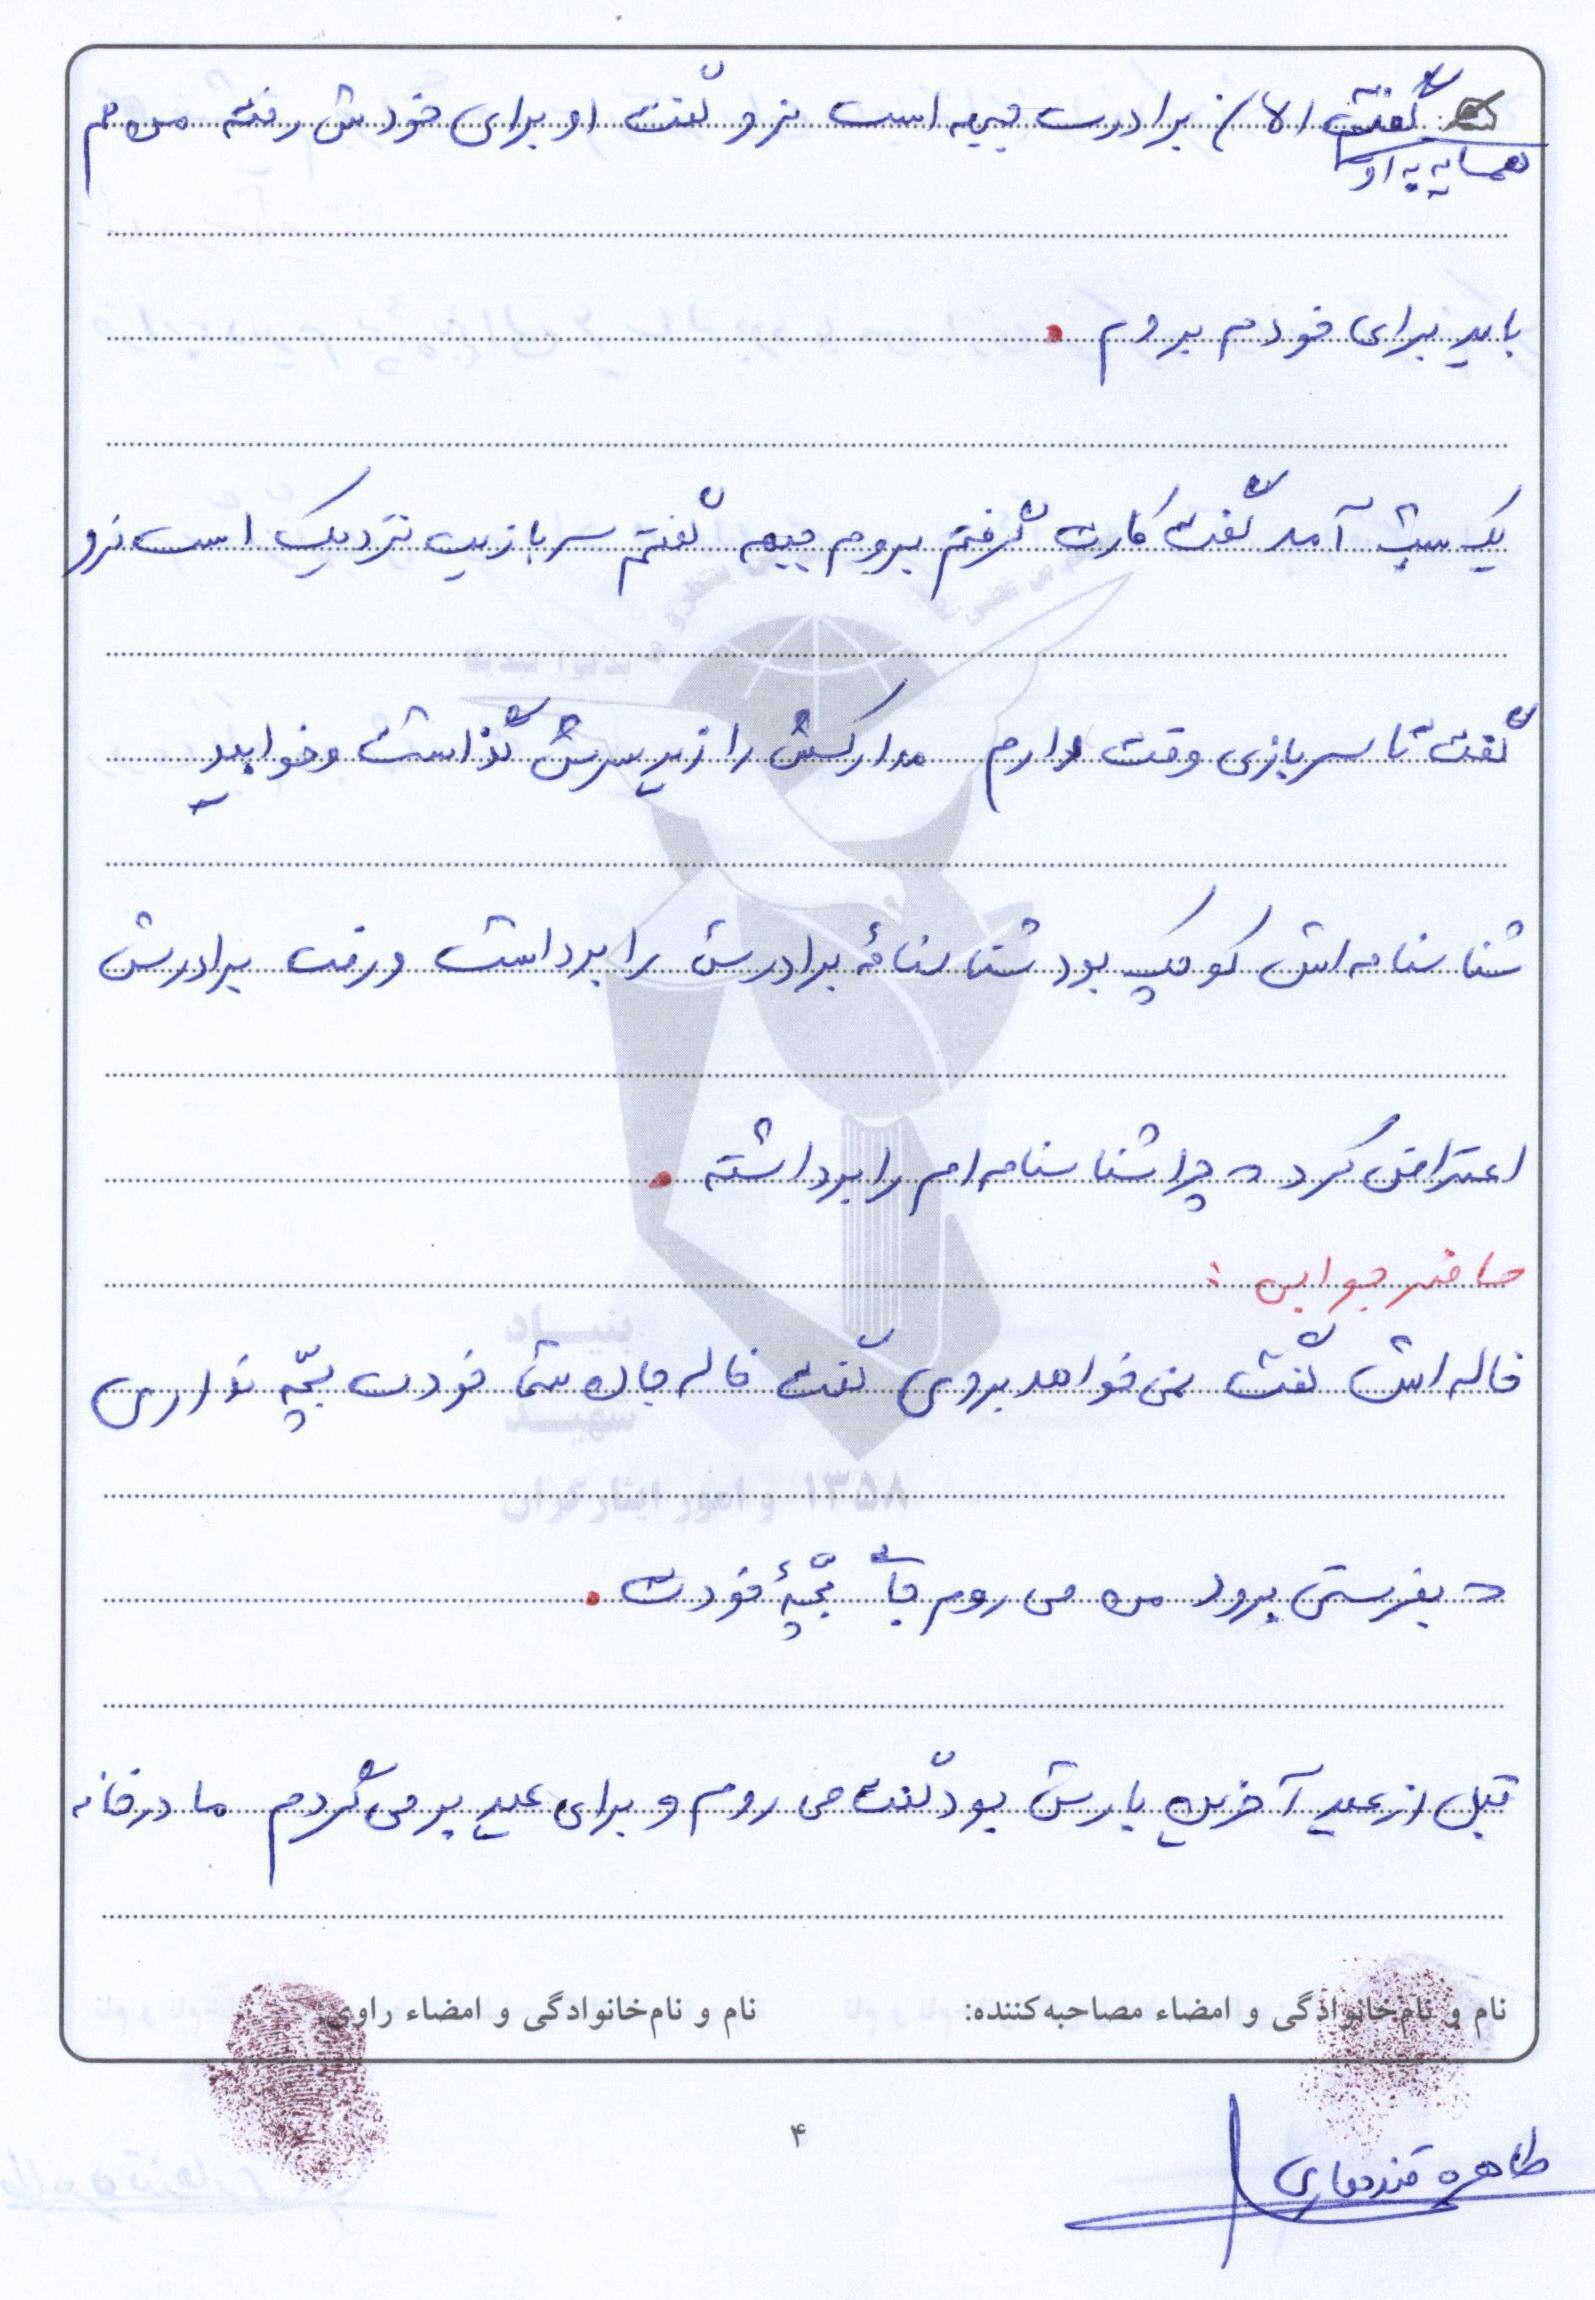 گفت الان برادرت جبهه است نرو گفت او برای خودش رفته من هم
همسایه به او
باید برای خودم بروم .
یک شب آمد گفت کارت گرفتم بروم جبهه گفتم سربازیت نزدیک است نرو
گفت تا سربازی وقت دارم مدارکش را زیر سرش گذاشت و خوابید
شناسنامه اش کوچک بود شناسنامهٔ برادرش را برداشت و رفت برادرش
اعتراض کرد که چرا شناسنامه ام را برداشته .
حاضر جوابی :
خاله اش گفت نمی خواهد بروی گفت خاله جان شما خودت بچّه نداری
که بفرستی برود من می روم جای بچّهٔ خودت .
قبل از عید آخرین بارش بود گفت می روم و برای عید بر می گردم ما در خانه
بنیاد
شهید
و امور ایثارگران ۱۳۵۸
نام و نام‌خانوادگی و امضاء مصاحبه‌کننده: نام و نام‌خانوادگی و امضاء راوی:
۴
طاهره قندهاری